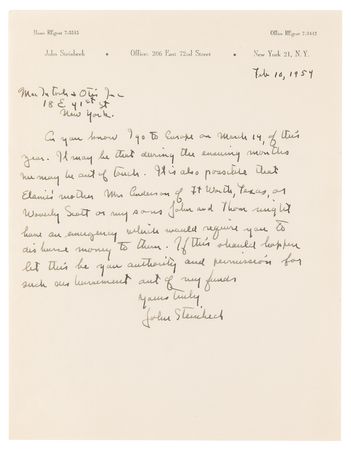 Home REgent 7-3143 Office REgent 7-3142
John Steinbeck • Office: 206 East 72nd Street • New York 21, N. Y.
Feb 10, 1954
McIntosh & Otis Inc
18 E 41st St
New York.
As you know I go to Europe on March 14, of this
year. It may be that during the ensuing months
we may be out of touch. It is also possible that
Elaine's mother Mrs Anderson of Ft Worth, Texas, or
Waverly Scott or my sons John and Thom might
have an emergency which would require you to
disburse money to them. If this should happen
let this be your authority and permission for
such disbursement out of my funds
Yours truly
John Steinbeck